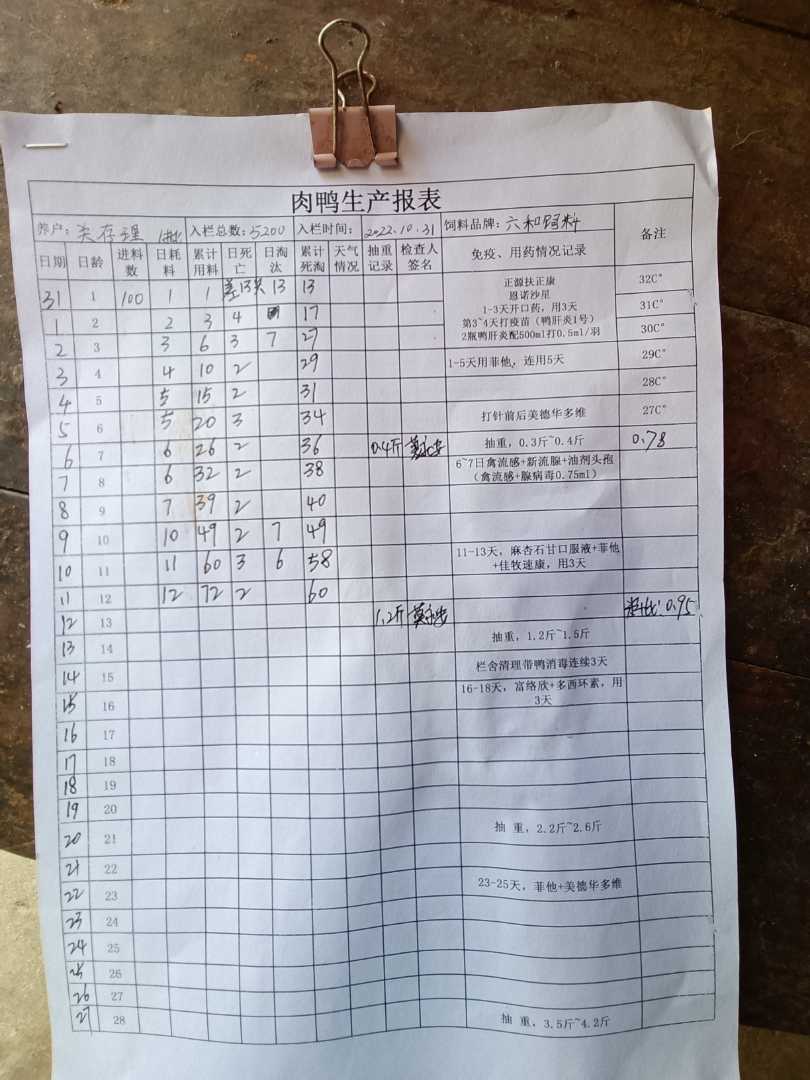 肉鸭生产报表
养户: 入栏总数: 5200 入栏时间: 2022.10.31 饲料品牌: 六和饲料 备注
日期 日龄 进料数 日耗料 累计用料 日死亡 日淘汰 累计死淘 天气情况 抽重记录 检查人签名 免疫、用药情况记录
31 1 100 1 1 13 13 正源扶正康 32C°
恩诺沙星
1-3天开口药，用3天
1 2 2 3 4 17 第3~4天打疫苗（鸭肝炎1号） 31C°
2 3 3 6 3 7 27 2瓶鸭肝炎配500ml打0.5ml/羽 30C°
3 4 4 10 2 29 1-5天用菲他，连用5天 29C°
4 5 5 15 2 31 28C°
5 6 5 20 3 34 打针前后美德华多维 27C°
6 7 6 26 2 36 0.4斤 抽重，0.3斤~0.4斤 0.78
7 8 6 32 2 38 6~7日禽流感+新流腺+油剂头孢
（禽流感+腺病毒0.75ml）
8 9 7 39 2 40
9 10 10 49 2 7 49
10 11 11 60 3 6 58 11-13天，麻杏石甘口服液+菲他
+佳牧速康，用3天
11 12 12 72 2 60
12 13 1.2斤 抽重，1.2斤~1.5斤 0.95
13 14
14 15 栏舍清理带鸭消毒连续3天
15 16 16-18天，富络欣+多西环素，用
3天
16 17
17 18
18 19
19 20
20 21 抽 重，2.2斤~2.6斤
21 22
22 23 23-25天，菲他+美德华多维
23 24
24 25
25 26
26 27
27 28 抽 重，3.5斤~4.2斤